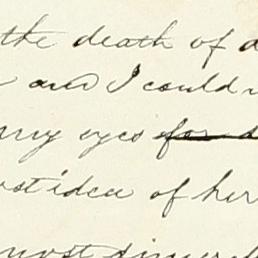 the death of
and I could
my eyes for
idea of her
most